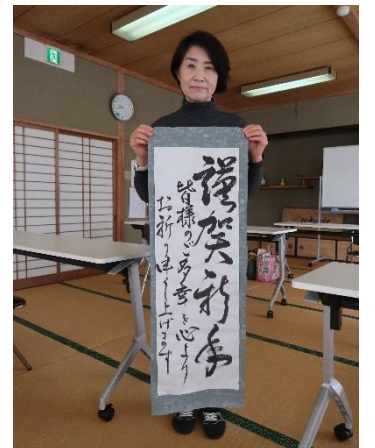 謹賀新年
皆様のご多幸を心より
お祈り申し上げます